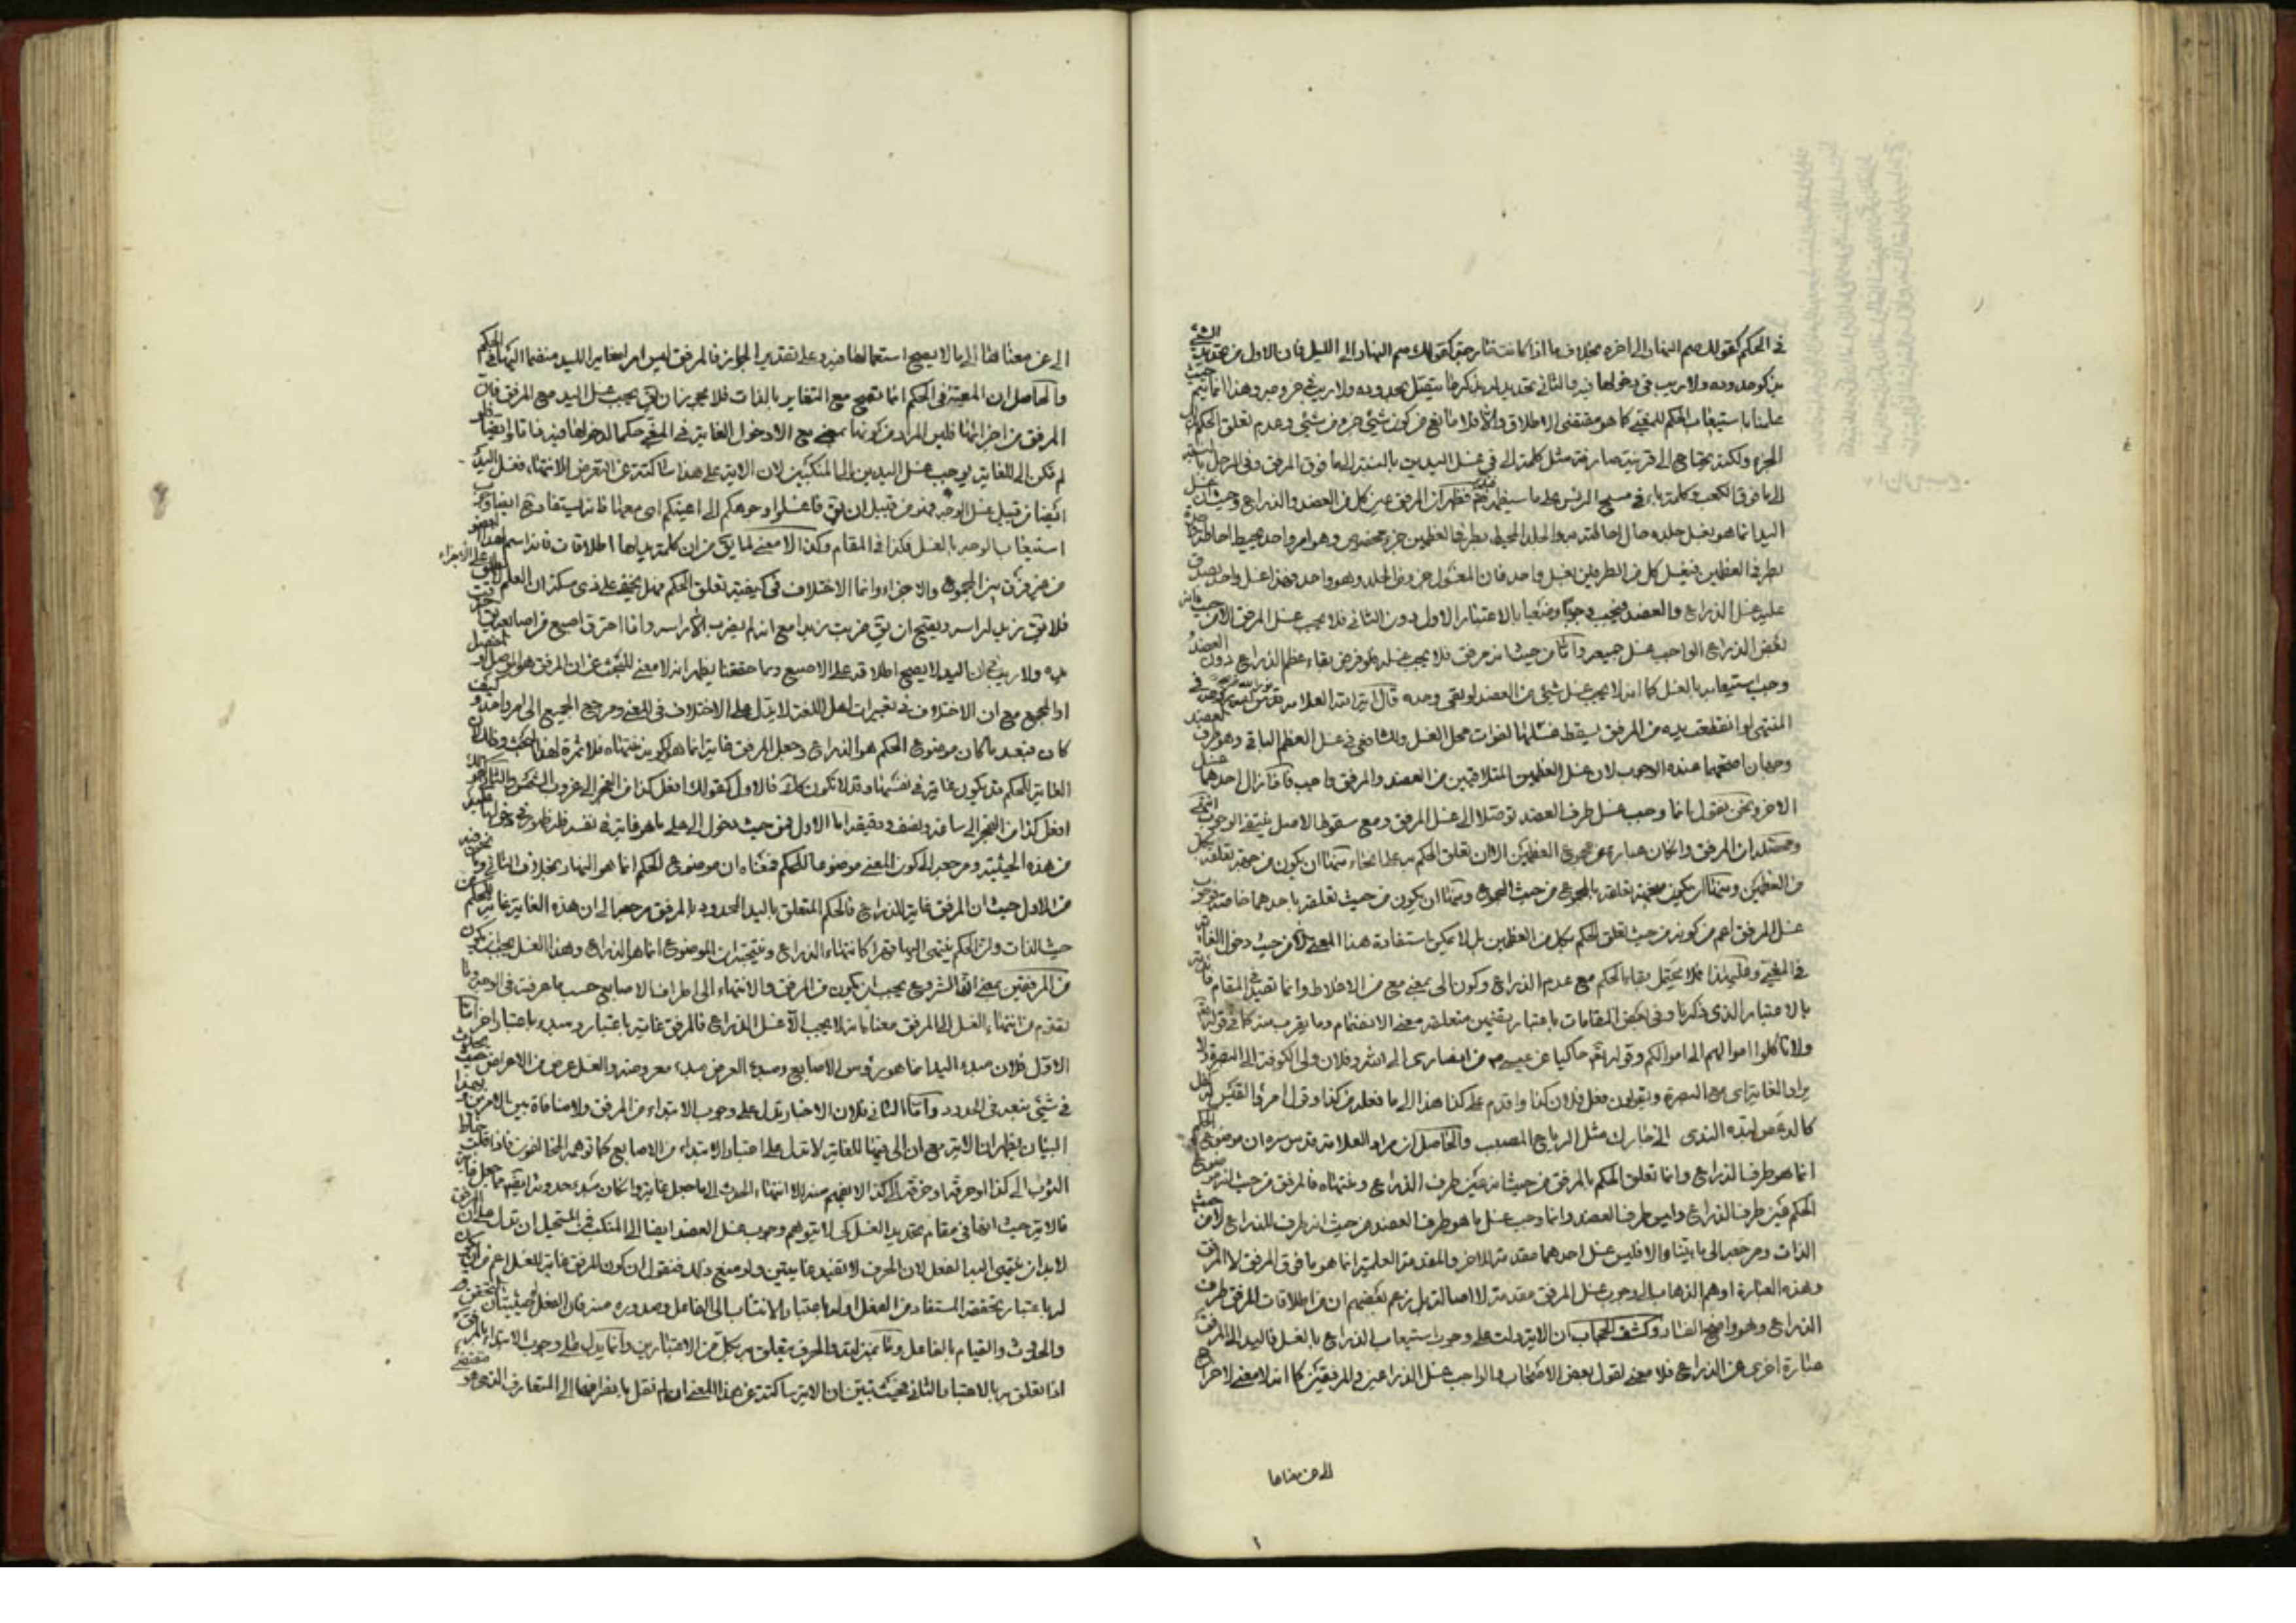 في الحكم كقولك صم النهار الى اخره بخلاف ما اذا كانت كقولك صم النهار الى الليل فان الاول من تحديد الشيء
بذكر حدوده ولا ريب في دخولها فيه والثاني تحديد له بذكر ما يتصل بحدوده ولا ريب في خروجه وهذا انما يتم حيث
علمنا باستيعاب الحكم للمغيى كما هو مقتضى الاطلاق والا فلا مانع من كون شيء جزء من شيء وعدم تعلق الحكم
الجزء ولكنه يحتاج الى قرينة صارفة مثل كلمة الى في غسل اليدين بالنسبة الى ما فوق المرفق وفي الرجل
الى ما فوق الكعب وكلمة باء في مسح الرأس على ما سيظهر فظهر ان المرفق من كل من العضد والذراع وحيث ان غسل
اليد انما هو بغسل جلده حال احاطته به والجلد المحيط بطرفي العظمين جزء مخصوص وهو امر واحد محيط احاطة
بطرفي العظمين فيغسل كل من الطرفين بغسل واحد فان المغسول جزء من الجلد وهو واحد وهذا غسل واحد يصدق
عليه غسل الذراع والعضد فيجب وجوبا وضعيا بالاعتبار الاول دون الثاني فلا يجب غسل المرفق الا من حيث
بعض الذراع الواجب غسل جميعه واما من حيث انه مرفق فلا يجب غسله فلو فرض بقاء عظم الذراع دون العضد
وجب استيعابه بالغسل كما انه لا يجب غسل شيء من العضد لو بقي وحده قال آية الله العلامة قدس سره في
المنتهى لو انقطعت يده من المرفق يسقط غسلها لفوات محل الغسل وللشافعي في غسل العظم الباقي وهو طرف العضد
وجهان اصحهما عنده الوجوب لان غسل العظمين المتلاقيين من العضد والمرفق واجب فاذا زال احدهما غسل
الاخر ونحن نقول بانما وجب غسل طرف العضد توصلا الى غسل المرفق ومع سقوط الاصل ينتفي الوجوب انتهى
ان المرفق وان كان عبارة عن مجموع العظمين الا ان تعلق الحكم به على انحاء منها ان يكون من جهة تعلقه بكل
من العظمين ومنها ان يكون من جهة تعلقه بالمجموع من حيث المجموع ومنها ان يكون من حيث تعلقه باحدهما خاصة
غسل المرفق اعم من كونه من حيث تعلق الحكم بكل من العظمين بل لا يمكن استفادة هذا المعنى الا من حيث دخول الغاية
في المغيى وعلى هذا فلا يحتمل بقاء الحكم مع عدم الذراع وكون الى بمعنى مع من الاغلاط وانما تفيد في المقام
بالاعتبار الذي ذكرنا وفي بعض المقامات باعتبار تضمين متعلقه معنى الانضمام وما يقرب منه كما في قوله تع
ولا تاكلوا اموالهم الى اموالكم وقوله تع حاكيا عن عيسى من انصاري الى الله وفلان ولي الكوفة الى البصرة
يراد الغاية اي مع البصرة ويقولون فعل فلان كذا واقدم على كذا هذا الى ما فعله من كذا وقال امرؤ القيس
كالدعص لبده الندى الى حارك مثل الرتاج المضبب والحاصل ان مراد العلامة قدس سره ان موضوع الحكم
انما هو طرف الذراع وانما تعلق الحكم بالمرفق من حيث انه عين طرف الذراع ومنتهاه فالمرفق من حيث انه موضوع
الحكم عين طرف الذراع وليس طرف العضد وانما وجب غسل ما هو طرف العضد من حيث انه طرف للذراع لا من حيث
الذات ومرجعه الى ما بينا والا فليس غسل احدهما مقدمة للاخر والمقدمة العلمية انما هو ما فوق المرفق لا المرفق
وهذه العبارة اوهم الذهاب الى وجوب غسل المرفق مقدمة لا اصالة بل زعم بعضهم ان من اطلاقات المرفق طرف
الذراع وهو واضح الفساد وكشف الحجاب ان الآية دلت على وجوب استيعاب الذراع بالغسل فاليد الى المرفق
عبارة اخرى عن الذراع فلا معنى لقول بعض الاصحاب والواجب غسل الذراعين والمرفقين كما انه لا معنى لاخراج
الى عن معناها
الى عن معناها الى ما لا يصح استعمالها فيه وعلى تقدير الجواز فالمرفق ليس امرا مغايرا لليد منضما اليها في الحكم
والحاصل ان المعية في الحكم انما تصح مع التغاير بالذات فلا يجوز ان يق يجب غسل اليد مع المرفق فان
المرفق من اجزائها فليس المراد من كونها بمعنى مع الا دخول الغاية في المغيى حكما لدخولها فيه
لم تكن الى للغاية يوجب غسل اليدين الى المنكبين لان الآية على هذا ساكتة عن التعرض للانتهاء فغسل اليد
ايضا من قبيل غسل الوجه فهو من قبيل ان يق فاغسلوا وجوهكم الى اعينكم اي معها فانه يستفاد منه ايضا وجوب
استيعاب الوجه بالغسل فكذا في المقام وكذا لا معنى لما يق من ان كلمة يد لها اطلاقات فانه اسم لهذا العضو
من غير فرق بين المجموع والاجزاء وانما الاختلاف في كيفية تعلق الحكم فهل يخفى على ذي مسكة ان العلم
فلا يق زيد لراسه ويصح ان يق ضربت زيدا مع انه لم يضرب الا راسه واذا احترق اصبع من اصابعه
يده ولا ريب في ان اليد لا يصح اطلاقه على الاصبع ومما حققنا يظهر انه لا معنى للبحث عن ان المرفق هو الموصل او المفصل
او المجمع مع ان الاختلاف في تعبيرات اهل اللغة لا يدل على الاختلاف في المعنى ومرجع الجميع الى امر واحد
كان فبعد ما كان موضوع الحكم هو الذراع وجعل المرفق غاية انما هو لكونه منتهاه فلا ثمرة لهذا البحث
الغاية للحكم قد يكون غاية في نفسها وقد لا تكون كك فالاول كقولك افعل كذا من الفجر الى غروب الشمس والثاني
افعل كذا من الفجر الى ساعة ونصف ودقيقة اما الاول فمن حيث دخول الى على ما هو غاية في نفسه
من هذه الحيثية ومرجعه الى كون المغيى موضوعا للحكم فمعناه ان موضوع الحكم انما هو النهار بخلاف الثاني
من الاول حيث ان المرفق غاية للذراع فالحكم المتعلق باليد المحدود بالمرفق مرجعه الى ان هذه الغاية غاية للحكم من
حيث الذات وان الحكم ينتهي اليها قهرا كانتهاء الذراع ونتيجته ان الموضوع انما هو الذراع وهذا الغسل يجب ان يكون
من المرفقين بمعنى ان الشروع يجب ان يكون من المرفق والانتهاء الى اطراف الاصابع حسب ما عرفت في الوجه وما
تقدم من انتهاء الغسل الى المرفق معناه انه لا يجب الا غسل الذراع فالمرفق غاية باعتبار ومبدء باعتبار اخر اما
الاول فلان مبدء اليد انما هو رؤس الاصابع ومبدء العرض مبدء معروضه والغسل عرض من الاعراض
في شيء بعد في الحدود واما الثاني فلان الاخبار تدل على وجوب الابتداء من المرفق ولا منافاة بين الامرين وبهذا
البيان يظهر ان الآية مع ان الى فيها للغاية لا تدل على اعتبار الابتداء من الاصابع كما توهمه المخالفون فاذا قلت خاط
الثوب الى كذا او حرقه او خرقه الى كذا لا يفهم منه الا انتهاء الحدث الى ما جعل غاية وان كان مبدء حدوثه
فالآية حيث انها في مقام تحديد الغسل كي لا يتوهم وجوب غسل العضد ايضا الى المنكب فمن المستحيل ان تدل على ان المرفق
لا بد ان ينتهي اليه الفعل لان الحرف لا تفيد غايتين ولو منع ذلك فنقول ان كون المرفق غاية للغسل اعم من ان يكون
له باعتبار تحققه المستفاد من الفعل او له باعتبار الانتساب الى الفاعل وصدوره منه فان للفعل حيثيتان التحقق
والحدوث والقيام بالفاعل والحرف يتعلق به بكل من الاعتبارين وانما يدل على وجوب الابتداء بالمرفق
اذا تعلق به بالاعتبار الثاني فحيث تبين ان الآية ساكتة عن هذا المعنى ان لم نقل بانصرافها الى المتعارف الذي هو مقتضى